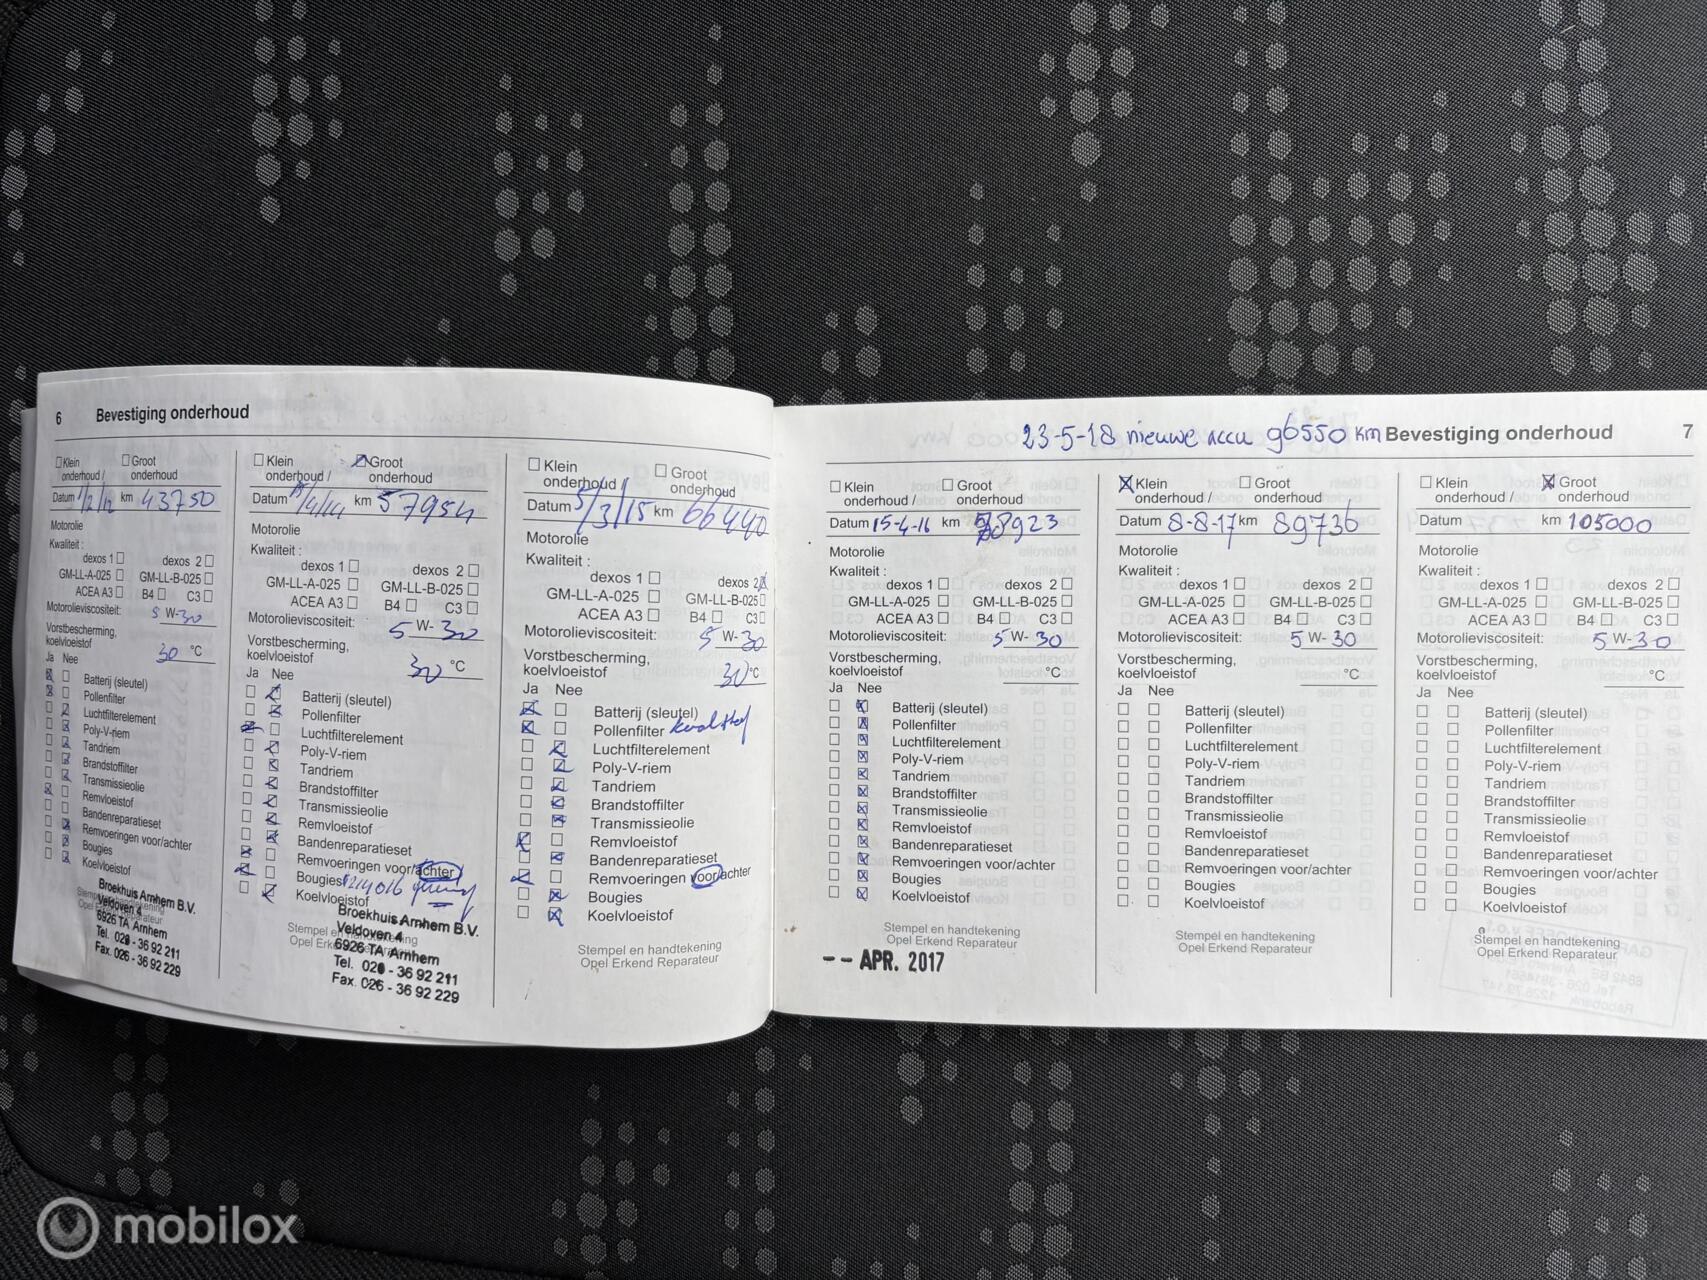 6 Bevestiging onderhoud
☐ Klein onderhoud / ☐ Groot onderhoud
Datum 1/2/12 km 43750
Motorolie
Kwaliteit :
dexos 1 ☐ dexos 2 ☐
GM-LL-A-025 ☐ GM-LL-B-025 ☐
ACEA A3 ☐ B4 ☐ C3 ☐
Motorolieviscositeit: 5 W-30
Vorstbescherming,
koelvloeistof 30 °C
Ja Nee
Batterij (sleutel)
Pollenfilter
Luchtfilterelement
Poly-V-riem
Tandriem
Brandstoffilter
Transmissieolie
Remvloeistof
Bandenreparatieset
Remvoeringen voor/achter
Bougies
Koelvloeistof
Broekhuis Arnhem B.V.
Veldoven 4
6926 TA Arnhem
Tel. 026 - 36 92 211
Fax. 026 - 36 92 229
☐ Klein onderhoud / ☑ Groot onderhoud
Datum 15/4/14 km 57954
Motorolie
Kwaliteit :
dexos 1 ☐ dexos 2 ☐
GM-LL-A-025 ☐ GM-LL-B-025 ☐
ACEA A3 ☐ B4 ☐ C3 ☐
Motorolieviscositeit: 5 W-30
Vorstbescherming,
koelvloeistof 30 °C
Ja Nee
Batterij (sleutel)
Pollenfilter
Luchtfilterelement
Poly-V-riem
Tandriem
Brandstoffilter
Transmissieolie
Remvloeistof
Bandenreparatieset
Remvoeringen voor/achter
Bougies
Koelvloeistof
Stempel en handtekening
Opel Erkend Reparateur
Broekhuis Arnhem B.V.
Veldoven 4
6926 TA Arnhem
Tel. 026 - 36 92 211
Fax. 026 - 36 92 229
☐ Klein onderhoud / ☐ Groot onderhoud
Datum 5/3/15 km 66440
Motorolie
Kwaliteit :
dexos 1 ☐ dexos 2 ☒
GM-LL-A-025 ☐ GM-LL-B-025 ☐
ACEA A3 ☐ B4 ☐ C3 ☐
Motorolieviscositeit: 5 W-30
Vorstbescherming,
koelvloeistof 30 °C
Ja Nee
Batterij (sleutel)
Pollenfilter
Luchtfilterelement
Poly-V-riem
Tandriem
Brandstoffilter
Transmissieolie
Remvloeistof
Bandenreparatieset
Remvoeringen voor/achter
Bougies
Koelvloeistof
Stempel en handtekening
Opel Erkend Reparateur
23-5-18 nieuwe accu 96550 km Bevestiging onderhoud 7
☐ Klein onderhoud / ☐ Groot onderhoud
Datum 15-4-16 km 78923
Motorolie
Kwaliteit :
dexos 1 ☐ dexos 2 ☐
GM-LL-A-025 ☐ GM-LL-B-025 ☐
ACEA A3 ☐ B4 ☐ C3 ☐
Motorolieviscositeit: 5 W- 30
Vorstbescherming,
koelvloeistof °C
Ja Nee
Batterij (sleutel)
Pollenfilter
Luchtfilterelement
Poly-V-riem
Tandriem
Brandstoffilter
Transmissieolie
Remvloeistof
Bandenreparatieset
Remvoeringen voor/achter
Bougies
Koelvloeistof
Stempel en handtekening
Opel Erkend Reparateur
-- APR. 2017
☒ Klein onderhoud / ☐ Groot onderhoud
Datum 8-8-17 km 89736
Motorolie
Kwaliteit :
dexos 1 ☐ dexos 2 ☐
GM-LL-A-025 ☐ GM-LL-B-025 ☐
ACEA A3 ☐ B4 ☐ C3 ☐
Motorolieviscositeit: 5 W- 30
Vorstbescherming,
koelvloeistof °C
Ja Nee
Batterij (sleutel)
Pollenfilter
Luchtfilterelement
Poly-V-riem
Tandriem
Brandstoffilter
Transmissieolie
Remvloeistof
Bandenreparatieset
Remvoeringen voor/achter
Bougies
Koelvloeistof
Stempel en handtekening
Opel Erkend Reparateur
☐ Klein onderhoud / ☒ Groot onderhoud
Datum km 105000
Motorolie
Kwaliteit :
dexos 1 ☐ dexos 2 ☐
GM-LL-A-025 ☐ GM-LL-B-025 ☐
ACEA A3 ☐ B4 ☐ C3 ☐
Motorolieviscositeit: 5 W-30
Vorstbescherming,
koelvloeistof °C
Ja Nee
Batterij (sleutel)
Pollenfilter
Luchtfilterelement
Poly-V-riem
Tandriem
Brandstoffilter
Transmissieolie
Remvloeistof
Bandenreparatieset
Remvoeringen voor/achter
Bougies
Koelvloeistof
Stempel en handtekening
Opel Erkend Reparateur
mobilox